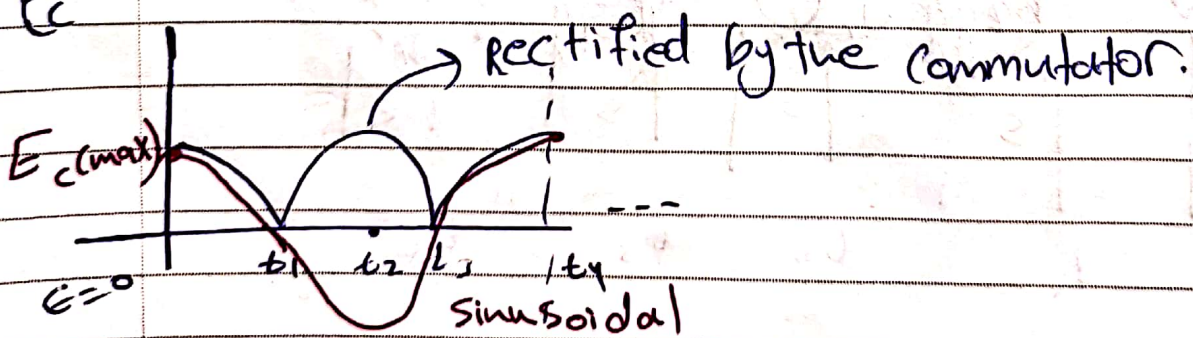 → Rectified by the Commutator.
E c(max)
---
t1 t2 t3 t4
Sinusoidal